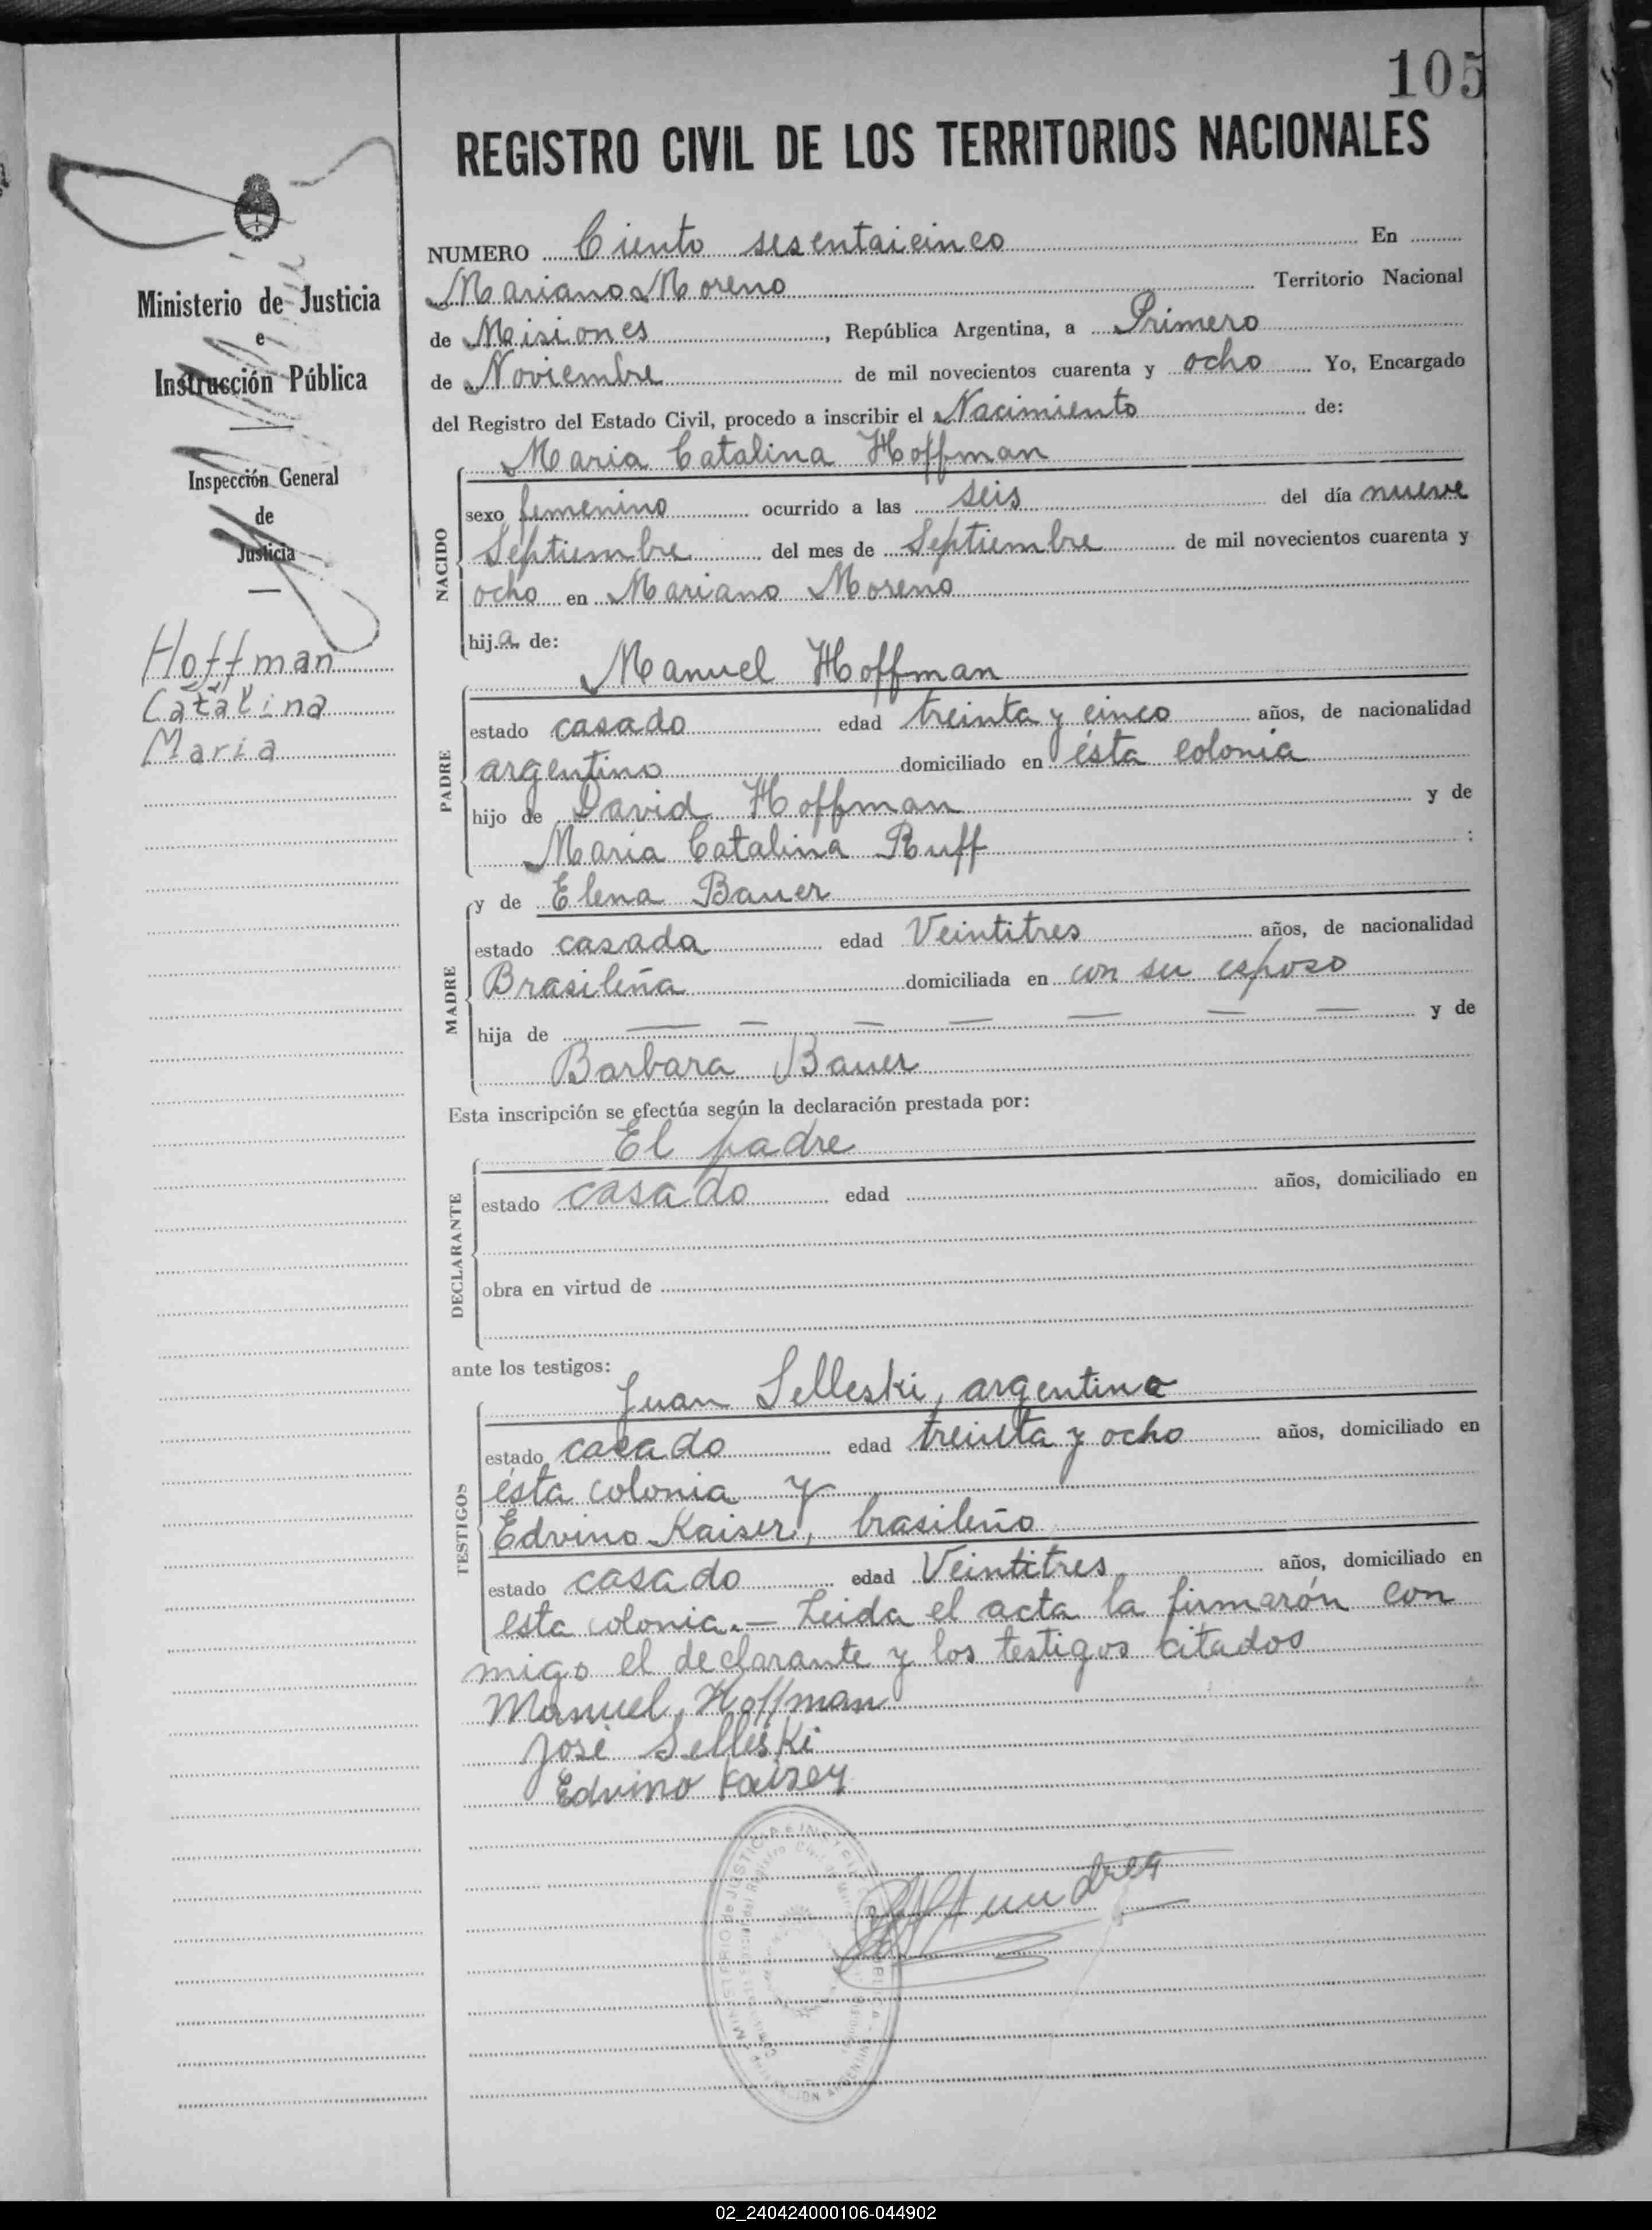 105
REGISTRO CIVIL DE LOS TERRITORIOS NACIONALES
Ministerio de Justicia
e
Instrucción Pública
Inspección General
de
Justicia
Hoffman
Catalina
Maria
NUMERO Ciento sesentaicinco En
Mariano Moreno Territorio Nacional
de Misiones, República Argentina, a Primero
de Noviembre de mil novecientos cuarenta y ocho Yo, Encargado
del Registro del Estado Civil, procedo a inscribir el Nacimiento de:
NACIDO
Maria Catalina Hoffman
sexo femenino ocurrido a las seis del día nueve
Septiembre del mes de Septiembre de mil novecientos cuarenta y
ocho en Mariano Moreno
hija de:
PADRE
Manuel Hoffman
estado casado edad treinta y cinco años, de nacionalidad
argentino domiciliado en ésta colonia
hijo de David Hoffman y de
Maria Catalina Ruff :
MADRE
y de Elena Bauer
estado casada edad Veintitres años, de nacionalidad
Brasileña domiciliada en con su esposo
hija de — — — — — — — y de
Barbara Bauer
Esta inscripción se efectúa según la declaración prestada por:
DECLARANTE
El padre
estado casado edad años, domiciliado en
obra en virtud de
ante los testigos:
TESTIGOS
Juan Selleski, argentino
estado casado edad treinta y ocho años, domiciliado en
ésta colonia y
Edvino Kaiser, brasileño
estado casado edad Veintitres años, domiciliado en
esta colonia. — Leida el acta la firmarón con
migo el declarante y los testigos citados
Manuel Hoffman
José Selleski
Edvino Kaiser
02_240424000106-044902